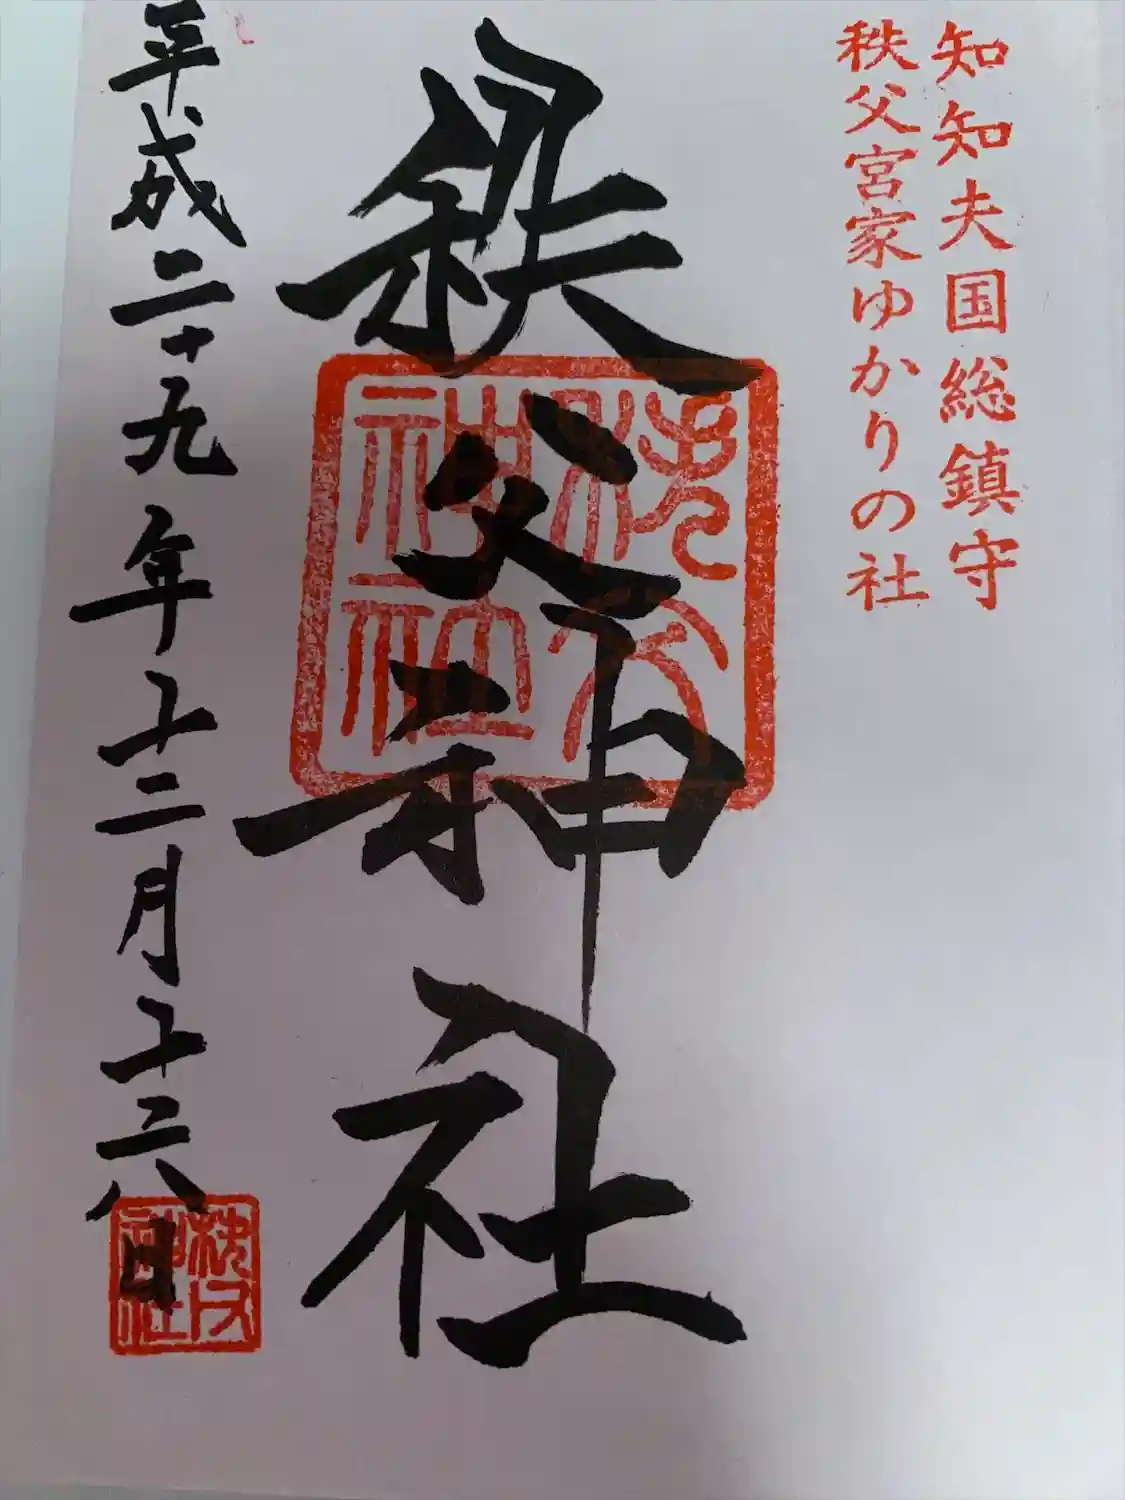 知知夫国総鎮守
秩父宮家ゆかりの社
秩父神社
秩父神社
平成二十九年十二月十二八日
秩父神社